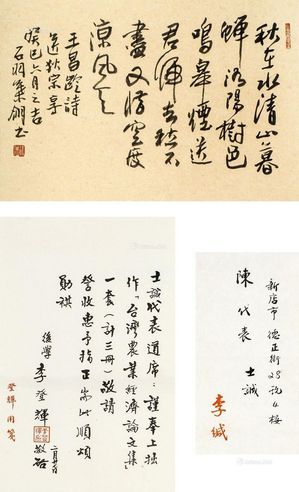 秋在水清山暮
蟬洛陽樹色
鳴皋煙送
君歸去愁不
盡又惜空度
涼風天
王昌齡詩
送狄宗亨
癸巳六月之吉
士誠代表道席:謹奉上拙
作『台灣農業經濟論文集』
一套(計三冊)敬請
詧收惠予指正 耑此順頌
勛祺
後學
李登輝 敬啟
登輝用箋
新店市德正街
陳代表 士誠
李緘